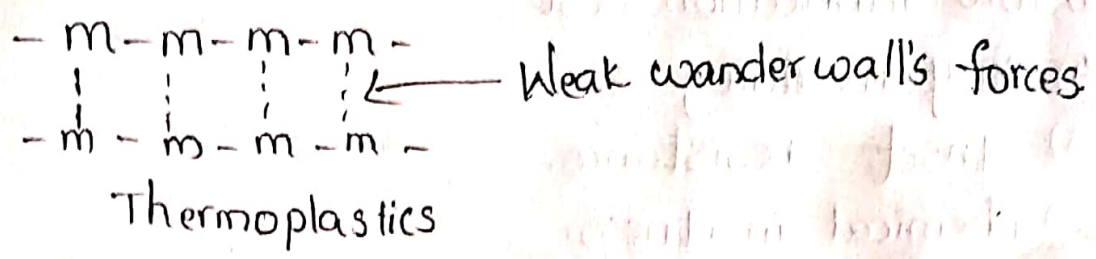 - m - m - m - m -
Weak wander wall's forces
- m - m - m - m -
Thermoplastics